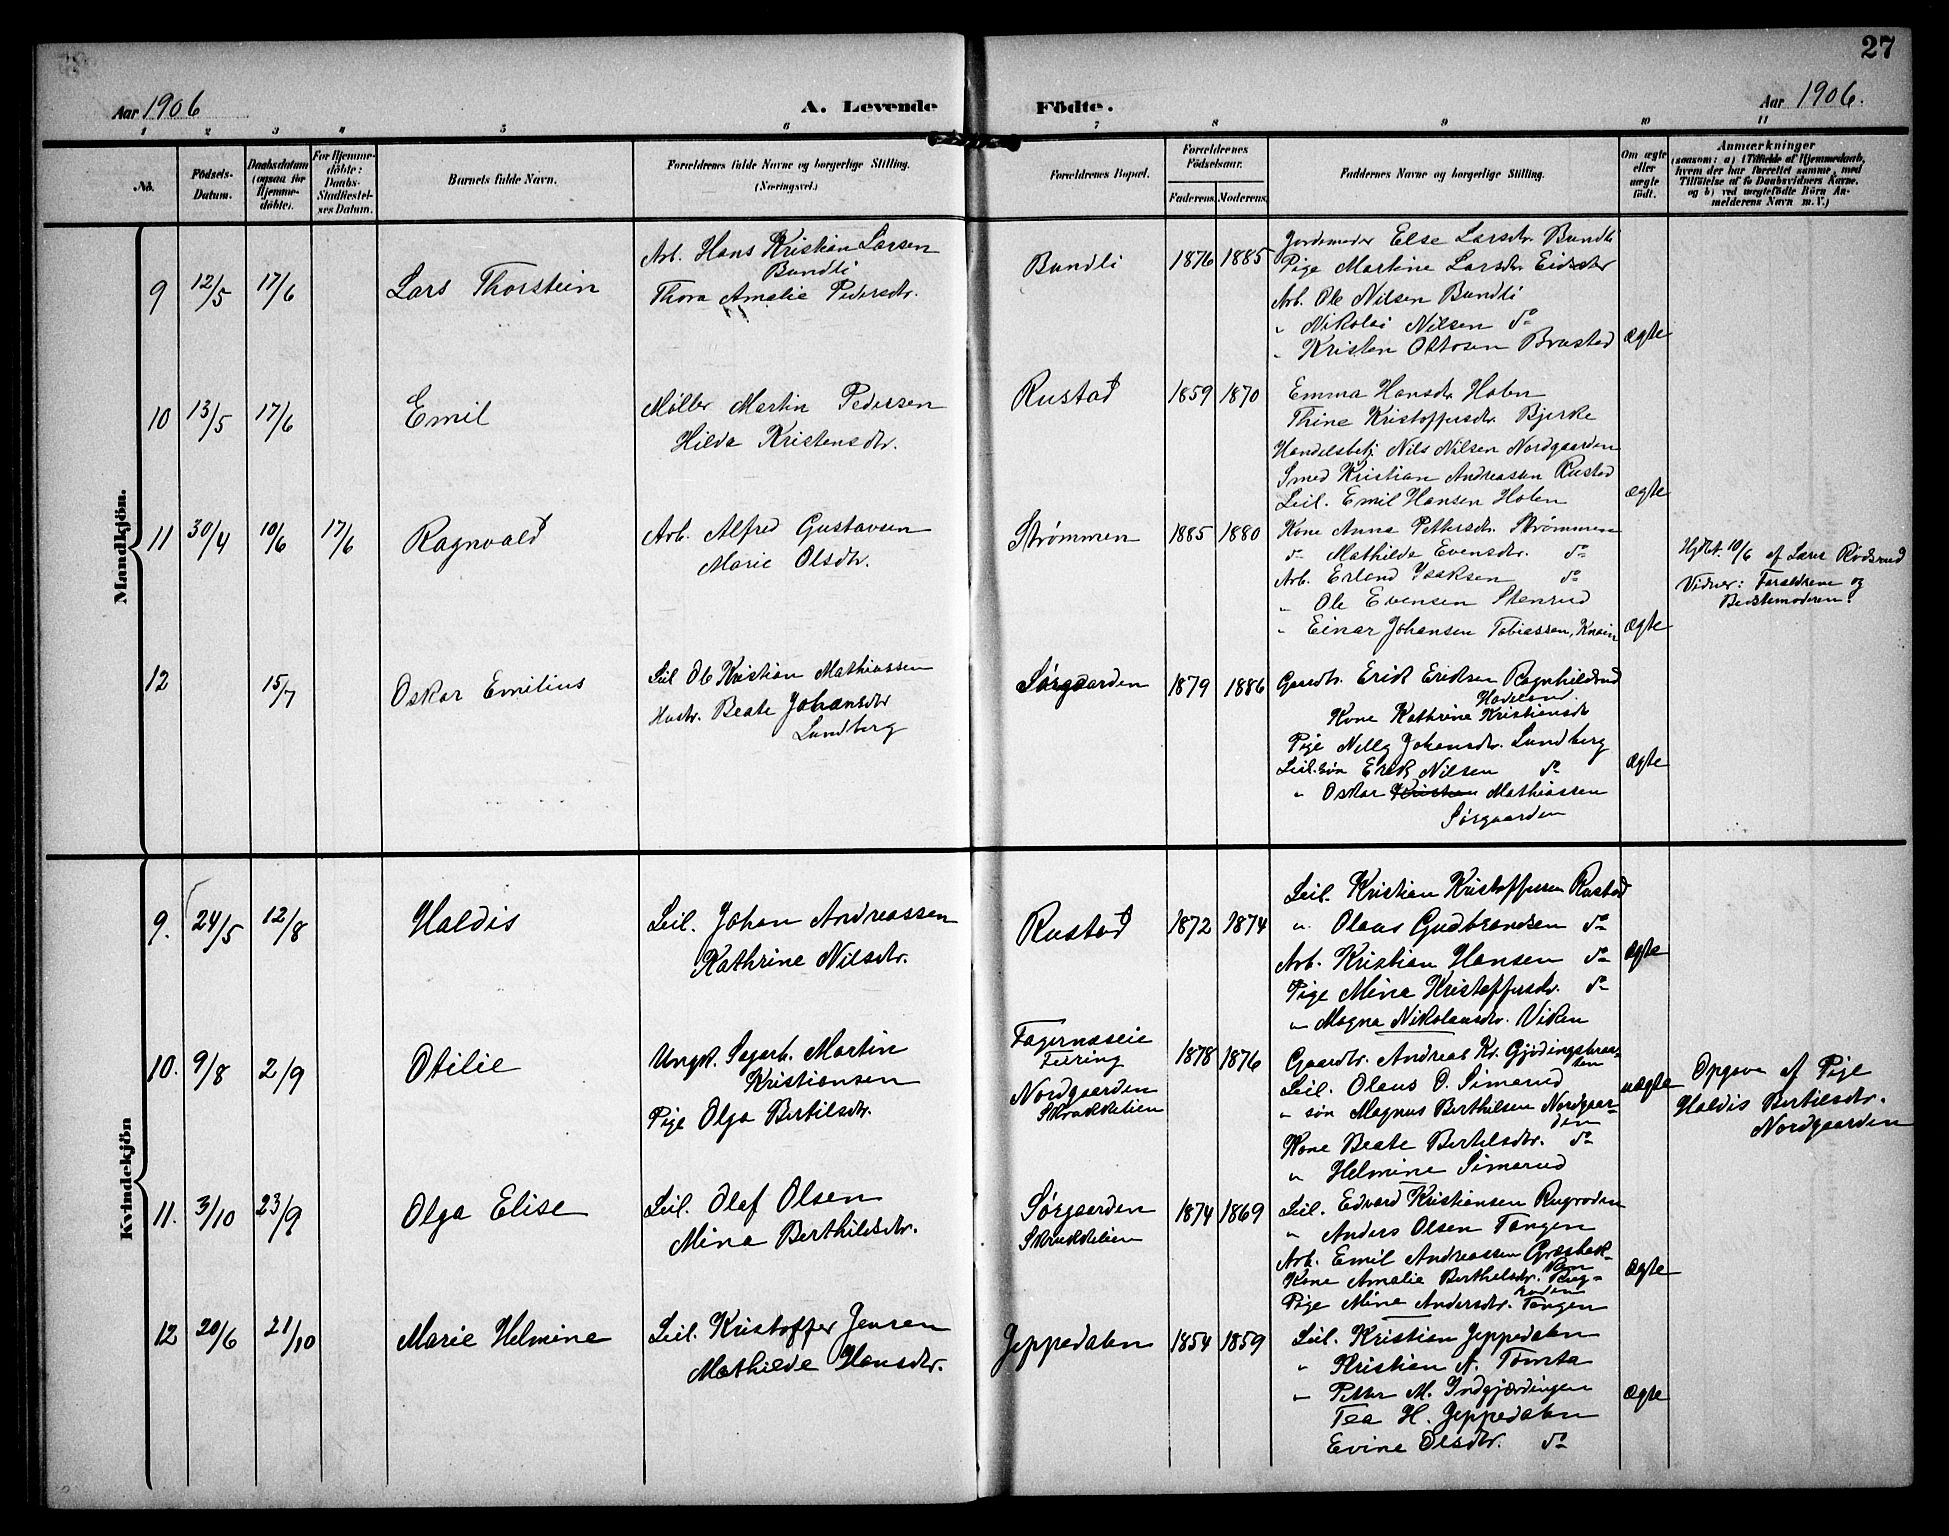 27
Aar 1906
A. Levende
Födte.
Aar 1906.
1 2 3 4 5 6 7 8 9 10 11
No.
Födsels-Datum.
Daabsdatum (ogsaa for Hjemme-döbte).
For Hjemme-döbte: Daabs-Stadfæstel-ses Datum.
Barnets fulde Navn.
Forældrenes fulde Navne og borgerlige Stilling. (Næringsvei.)
Forældrenes Bopæl.
Forældrenes Födselsaar.
Faderens. Moderens.
Faddernes Navne og borgerlige Stilling.
Om ægte eller uægte födt.
Anmærkninger
(saasom: a) i Tilfælde af Hjemmedaab, hvem der har forrettet samme, med Tilföielse af to Daabsvidners Navne, og b) ved uægtefödte Börn Anmelderens Navn m. V.)
Mandkjön.
9 12/5 17/6 Lars Thorstein
Arb. Hans Kristian Larsen
Bundli
Thora Amalie Pedersdtr.
Bundli 1876 1885
Jordemoder Else Larsdtr. Bundli
Pige Martine Larsdtr. Eidseter
Arb. Ole Nilsen Bundli
" Nikolai Nilsen do
" Kristen Ottosen Brustad
ægte
10 13/5 17/6 Emil
Møller Martin Pedersen
Hilda Kristensdtr.
Rustad 1859 1870
Emma Hansdtr. Holen
Thine Kristoffersdtr. Bjerke
Handelsbetj. Nils Nilsen Nordgaarden
Smed Kristian Andreassen Rustad
Leil. Emil Hansen Holen
ægte
11 30/4 10/6 17/6 Ragnvald
Arb. Alfred Gustavsen
Marie Olsdtr.
Strømmen 1885 1880
Kone Anna Pettersdtr. Strømmen
do Mathilde Evensdtr. do
Arb. Erland Isaksen do
" Ole Evensen Stenrud
" Einar Johansen Tobiassen, Knain
ægte
Hjdbt. 10/6 af Lars Rødsrud
Vidner: Foraldrene og
Bestemoderen.
12 15/7 Oskar Emilius
Leil Ole Kristian Mathiassen
Hustr. Beate Johansdtr
Lundberg
Sørgaarden 1879 1886
Gaardbr. Erik Eriksen Ragnhildrud
Hadeland.
Kone Kathrine Kristiansdtr
Pige Nelly Johansdtr. Lundberg
Leil.søn Erik Nilsen do
" Oskar Kristian Mathiassen
Sørgaarden
ægte
Kvindekjön
9. 24/5 12/8 Haldis
Leil. Johan Andreassen
Kathrine Nilsdtr.
Rustad 1872 1874
Leil. Kristian Kristoffersen Rustad
" Olaus Gudbrandsen do
Arb. Kristian Hansen do
Pige Mina Kristoffersdtr. do
" Magna Nikolausdtr. Viken
ægte
10. 9/8 2/9 Otilie
Ungk. Sagarb. Martin
Kristiansen
Pige Olga Bertilsdtr.
Fagernæseie
Feiring
Nordgaarden
Skrukkelien
1878 1876
Gaardbr. Andreas Kr. Gjødingstraa-
ten
Leil. Olaus O. Simarud
" søn Magnus Berthilsen Nordgaar-
den
Kone Beate Bertelsdtr. do
" Helmine Simarud
uægte
Opgave af Pige
Haldis Bertilsdtr.
Nordgaarden
11. 3/10 23/9 Olga Elise
Leil. Olaf Olsen
Mina Berthilsdtr.
Sørgaarden
Skrukkelien
1874 1869
Leil. Edvard Kristiansen Rugroden
" Anders Olsen Tangen
Arb. Emil Andreassen Græsbak-
ken
Kone Amalie Berthelsdtr. Rug-
roden
Pige Mina Andersdtr. Tangen
ægte
12 20/6 21/10 Marie Helmine
Leil. Kristoffer Jensen
Mathilde Hansdtr.
Jeppedalen 1854 1859
Leil. Kristian Jeppedalen
" Kristian A. Tømta
" Petter M. Indgjærdingen
Tea H. Jeppedalen
Evine Olsdtr. do
ægte